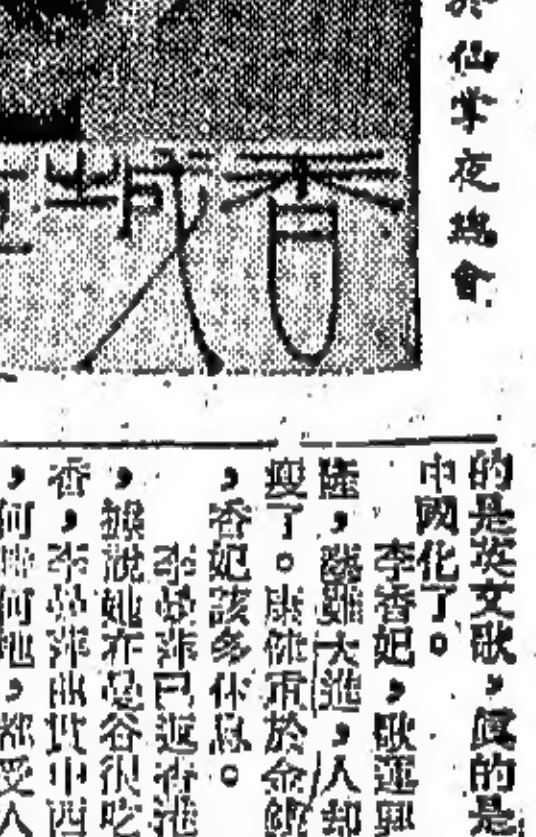 仙掌夜總會
香
的是英文歌,眞的是
中國化了。
李香妃,歌運興
隆,藝雖大進,人却
瘦了。康健重於金錢
,香妃該多休息。
李曼萍已返香港
,據說她在曼谷很吃
香,李曼萍曲改中西
,何時何地,都受人